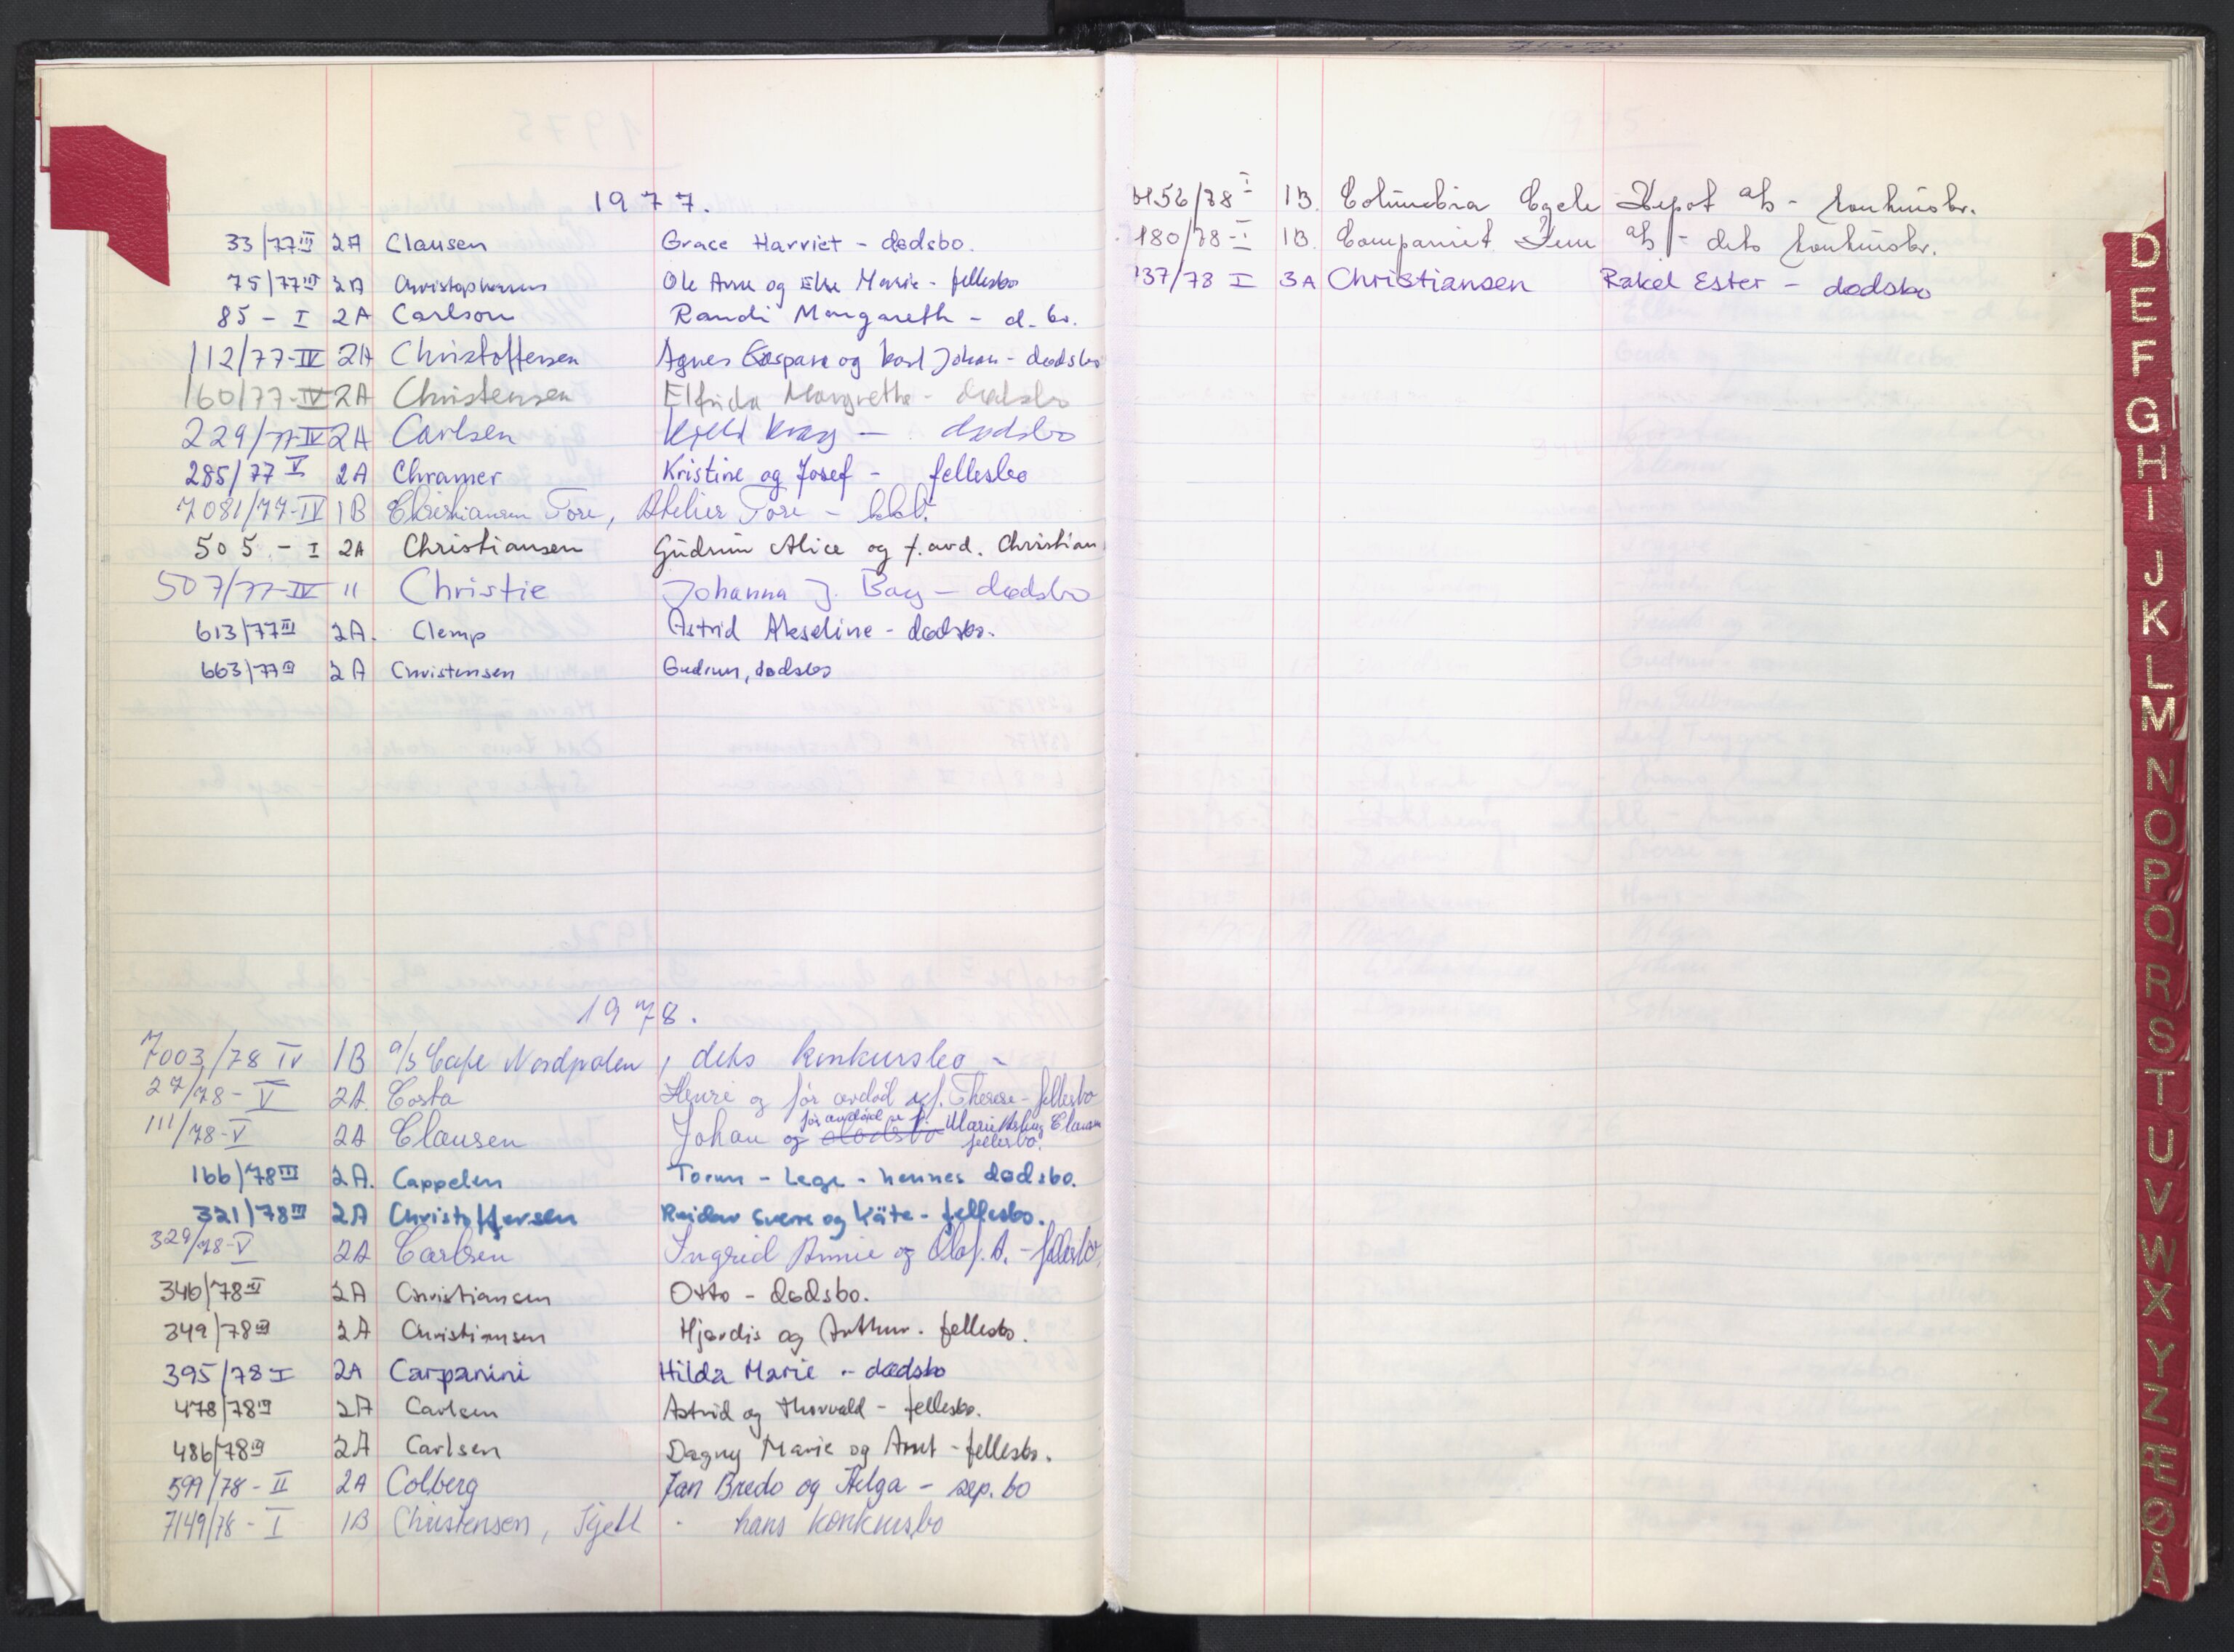 1977.
33/77 III 2A Clausen Grace Harriet - dødsbo.
75/77 III 2A Christophersen Ole Arne og Else Marie - fellesbo
85 - I 2A Carlson Randi Margareth - d. bo.
112/77-IV 2A Christoffersen Agnes Caspara og Karl Johan - dødsbo
160/77-IV 2A Christensen Elfrida Margrethe - dødsbo
229/77-IV 2A Carlsen Kjeld Krag - dødsbo
285/77 V 2A Chramer Kristine og Josef - fellesbo
7081/77-IV 1B Christiansen Tore, Atelier Tore - kkb.
505 - I 2A Christiansen Gudrun Alice og f. avd. Christian
507/77-IV " Christie Johanna J. Bay - dødsbo
613/77 III 2A. Clemp Astrid Akseline - dødsbo.
663/77 2A Christensen Gudrun, dødsbo
1978.
7003/78 IV 1B a/s Cafe Nordpolen, dets konkursbo -
27/78 - V 2A. Costa Henri og før avdød Therese - fellesbo
111/78-V 2A Clausen Johan og dødsbo før avdøde Marie Clausen fellesbo.
166/78 III 2A. Cappelen Torun - Lege - hennes dødsbo.
321/78 III 2A Christoffersen Reidar Sverre og Käte - fellesbo.
329/78-V 2A Carlsen Ingrid Annie og Olaf. A. - fellesbo.
346/78 2A Christiansen Otto - dødsbo.
349/78 2A Christiansen Hjørdis og Arthur. fellesbo.
395/78 I 2A Carpanini Hilda Marie - dødsbo
478/78 2A Carlsen Astrid og Thorvald - fellesbo.
486/78 2A Carlsen Dagny Marie og Arnt - fellesbo.
599/78 - II 2A Colberg Jan Bredo og Helga - sep. bo
7149/78 - I 1B Christensen, Kjell - hans konkursbo
456/78 I 1B. Columbia Cycle Depot as - konkursbo.
180/78 - I 1B. Companiet as - dets konkursbo.
137/78 I 3A Christiansen Rakel Ester - dødsbo
D
E
F
G
H
I
J
K
L
M
N
O
P
Q
R
S
T
U
V
W
X
Y
Z
Æ
Ø
Å